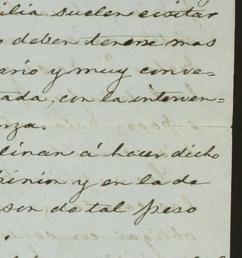 ilia suelen visitar
deben tenerse mas
y muy conve-
tada, con la interven-
nza.
linan á hacer dicho
pinion y en la de
son de tal peso